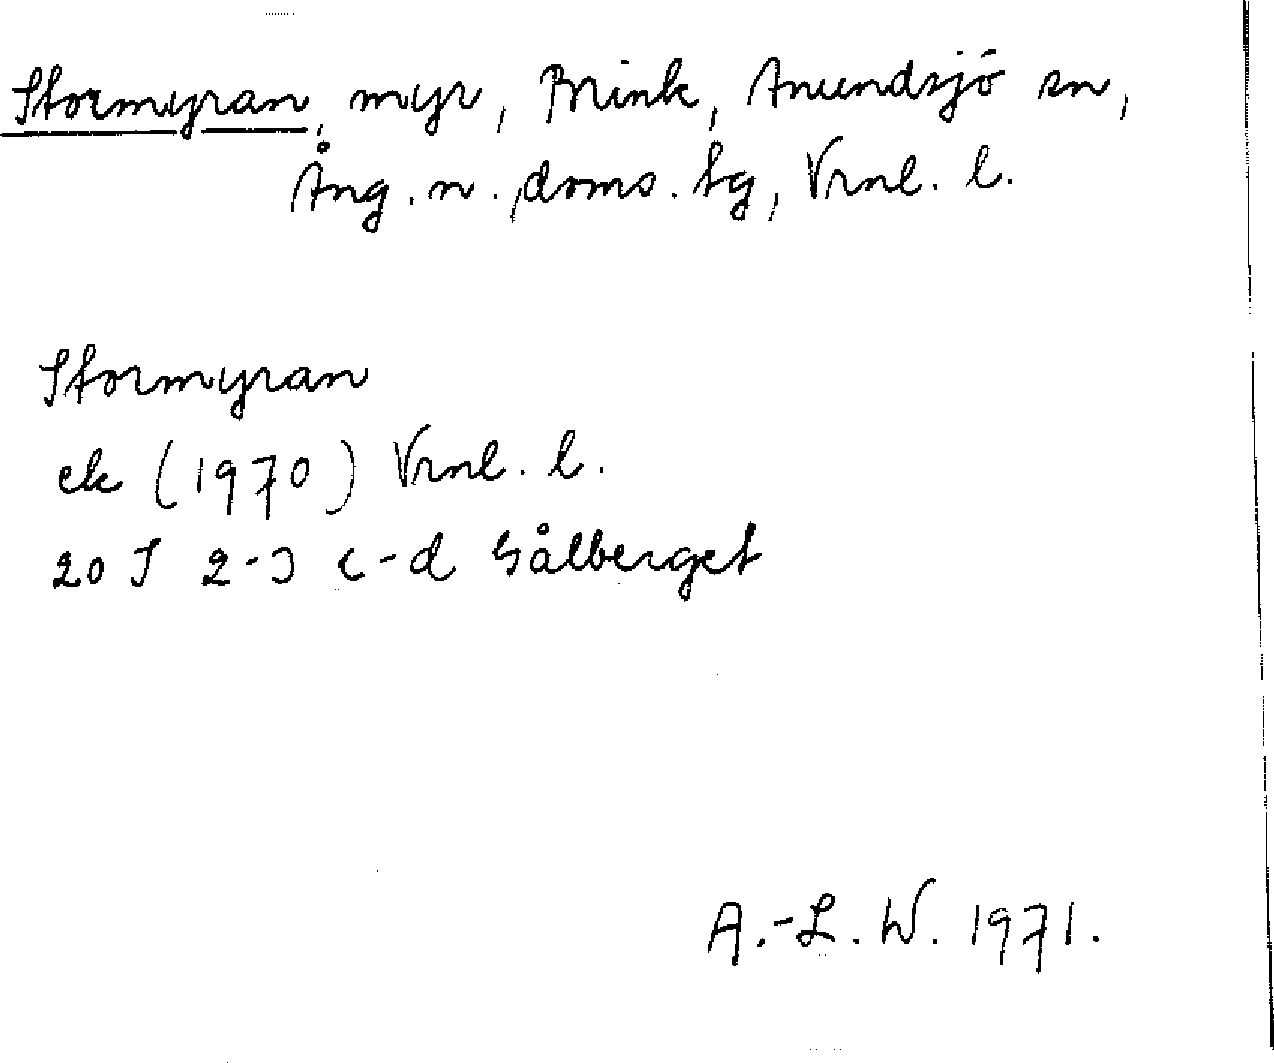 Stormyran, myr, Brink, Anundsjö sn,
Ång. n. doms. tg, Vrnl. l.
Stormyran
ek (1970) Vrnl. l.
20 J 2-3 c-d Gålberget
A.-L. W. 1971.